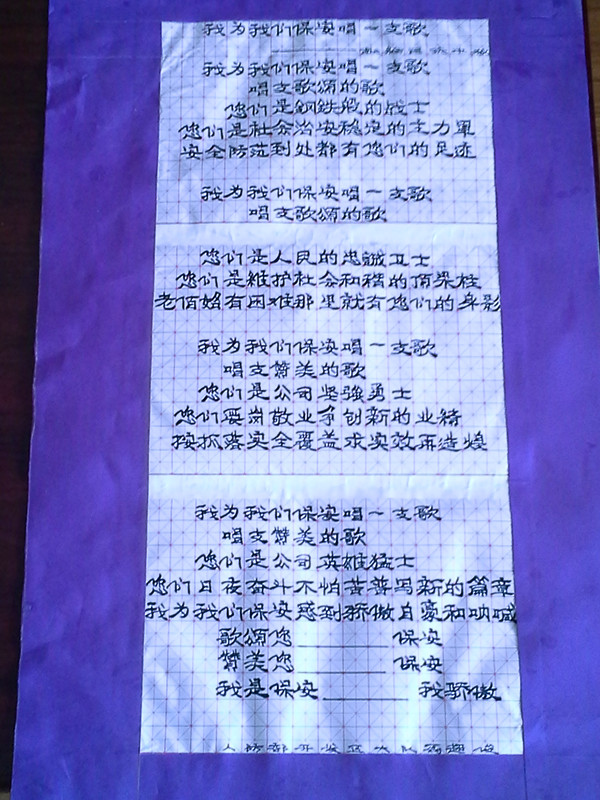 我为我们保安唱一支歌
我为我们保安唱一支歌
唱支歌颂的歌
您们是钢铁般的战士
您们是社会治安稳定的主力军
安全防范到处都有您们的足迹
我为我们保安唱一支歌
唱支歌颂的歌
您们是人民的忠诚卫士
您们是维护社会和谐的顶梁柱
老佰姓有困难那里就有您们的身影
我为我们保安唱一支歌
唱支赞美的歌
您们是公司坚強勇士
您们爱岗敬业争创新的业绩
按抓落实全覆盖求实效再造煌
我为我们保安唱一支歌
唱支赞美的歌
您们是公司英雄猛士
您们日夜奋斗不怕苦普写新的篇章
我为我们保安感到骄傲自豪和呐喊
歌颂您______保安
赞美您______保安
我是保安______我骄傲